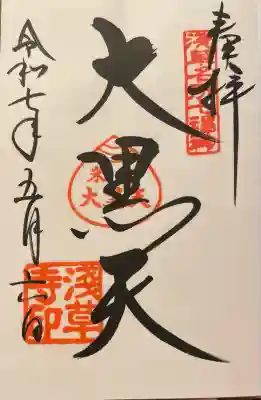 奉拝
浅草名所七福神
大黒天
令和七年五月六日
浅草寺印